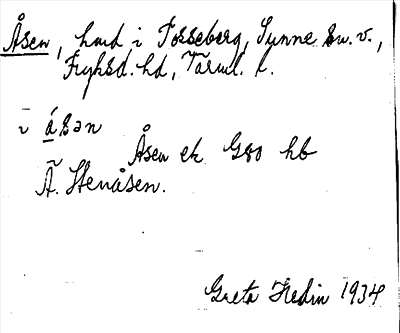 Åsen, hmd i Torseberg, Sunne sw. v.,
Fryksd. hd, Värml. l.
i ǻsən
Åsen ek G80 hb
Ã. Stenåsen.
Greta Hedin 1934